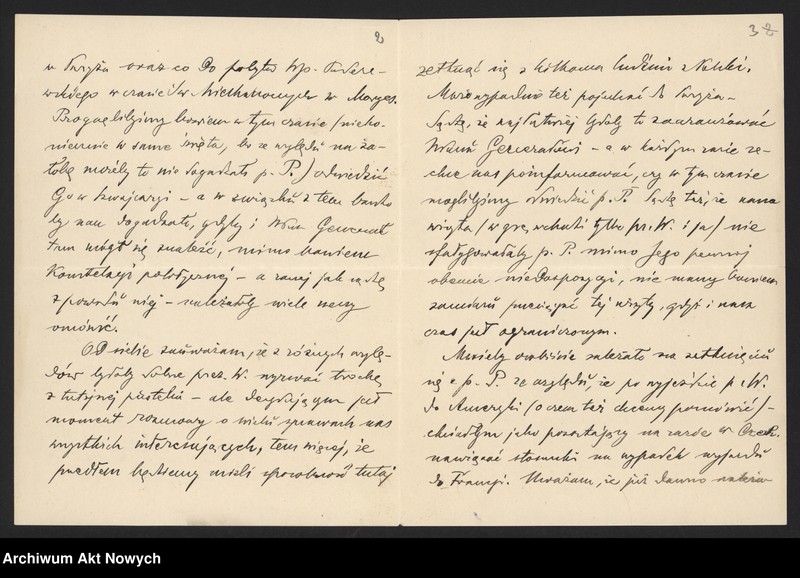 2
w Paryżu oraz co do pobytu Wp. Padere-
wskiego w czasie św. Wielkanocnych w Morges.
Pragnęlibyśmy bowiem w tym czasie /nieko-
niecznie w same święta, bo ze względu na ża-
łobę mogłoby to nie dogadzać p. P./ odwiedzić
Go w Szwajcarji – a w związku z tem bardzo
by nam dogadzało, gdyby i Pan Generał
tam mógł się znaleść, mimo bowiem
Konstelacji politycznej – a raczej jak sądzę
z powodu niej – należałoby wiele rzeczy
omówić.
Od siebie zauważam, że z różnych wzglę-
dów byłoby dobre prez. W. wyrwać trochę
z tutejszej pustelni – ale decydującym jest
moment rozmowy o wielu sprawach nas
wszystkich interesujących, tem więcej, że
przedtem będziemy mieli sposobność tutaj
3
zetknąć się z kilkoma ludźmi z Polski.
Może wypadnie też pojechać do Paryża –
Sądzę, że najłatwiej byłoby to zaaranżować
Panu Generałowi – a w każdym razie ze-
chce nas poinformować, czy w tym czasie
moglibyśmy odwiedzić p. P. Sądzę też, że nasza
wizyta /w grę wchodzi tylko pr. W. i ja/ nie
sfatygowałaby p. P. mimo Jego pewnej
obecnie niedyspozycji, nie mamy bowiem
zamiaru przeciągać tej wizyty, gdyż i nasz
czas jest ograniczonym.
Mnieby osobiście zależało na zetknięciu
się z p. P. ze względu, że po wyjeździe p. W.
do Ameryki /o czem też chcemy pomówić/ –
chciałbym jako pozostający na razie w Czech.
nawiązać stosunki na wypadek wyjazdu
do Francji. Uważam, że już dawno należa-
Archiwum Akt Nowych